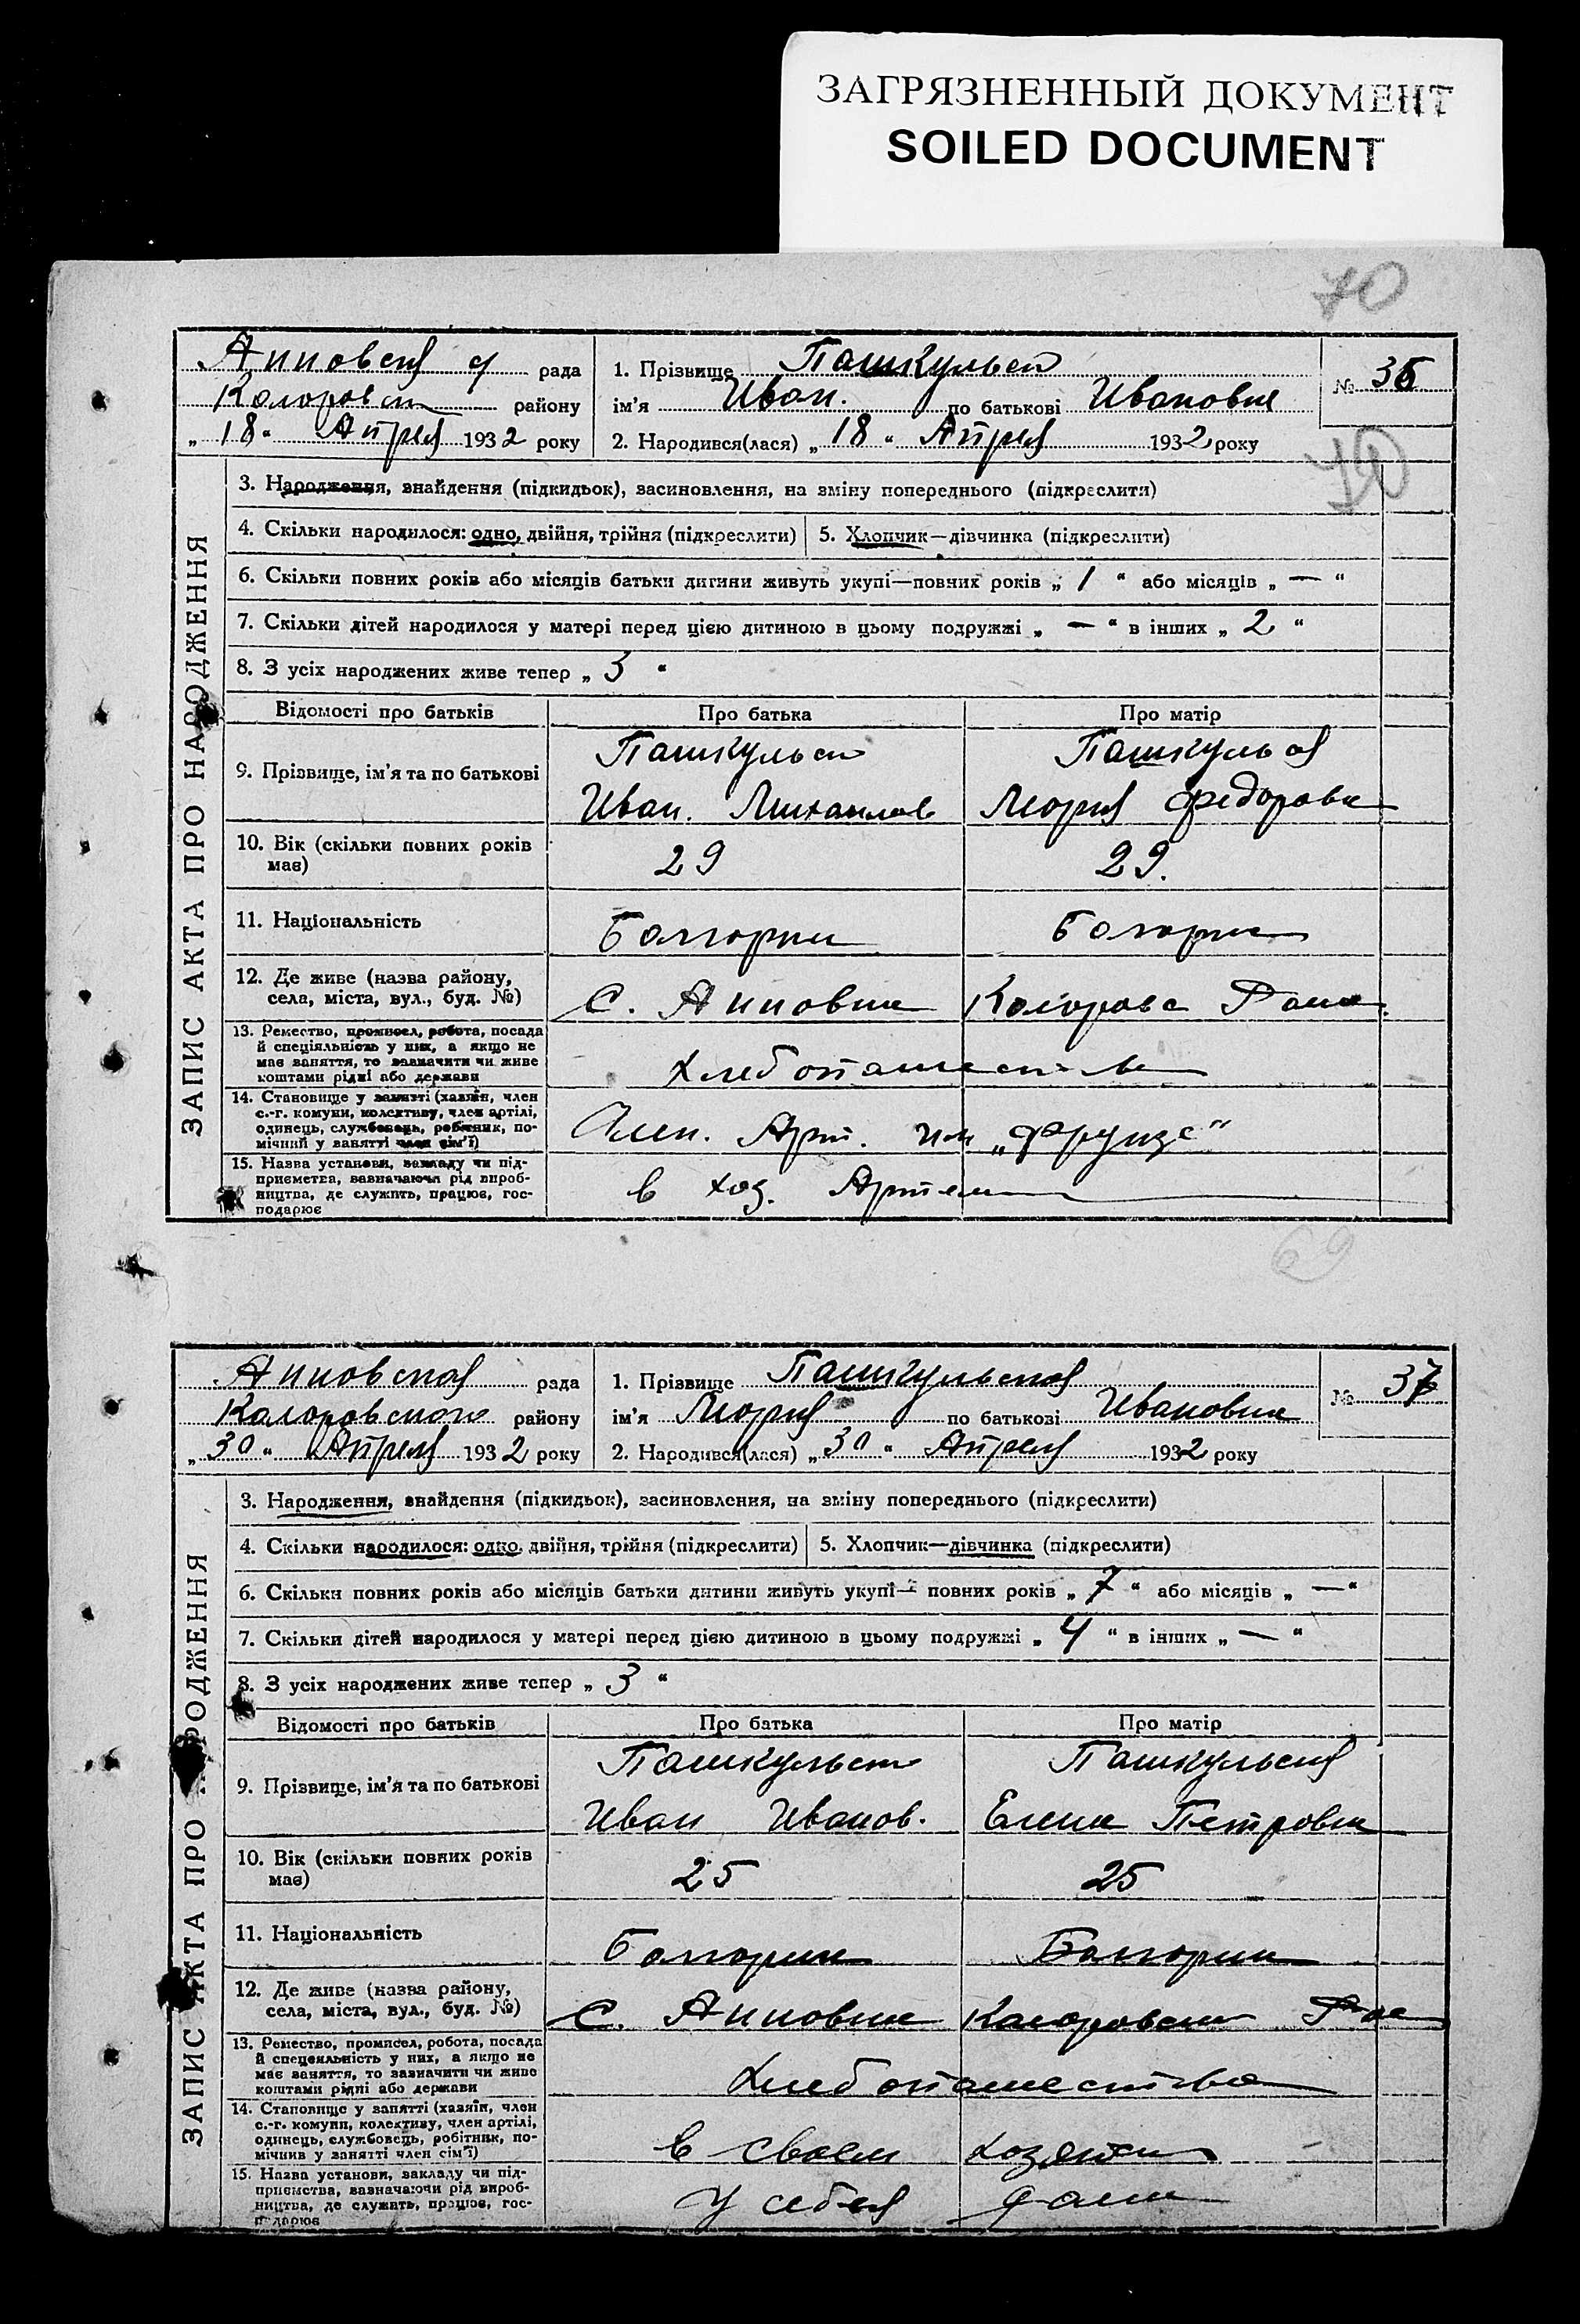 ЗАГРЯЗНЕННЫЙ ДОКУМЕНТ
SOILED DOCUMENT
70
Анновская рада
району
„ 18 “ Апреля 1932 року
1. Прізвище Пашкульск
ім'я Иван. по батькові Ивановие
2. Народився(лася) „ 18 “ Апреля 1932 року
№ 36
70
ЗАПИС АКТА ПРО НАРОДЖЕННЯ
3. Народження, знайдення (підкидьок), засиновлення, на зміну попереднього (підкреслити)
4. Скільки народилося: одно, двійня, трійня (підкреслити)
5. Хлопчик—дівчинка (підкреслити)
6. Скільки повних років або місяців батьки дитини живуть укупі—повних років „ 1 “ або місяців „ — “
7. Скільки дітей народилося у матері перед цією дитиною в цьому подружжі „ — “ в інших „ 2 “
8. З усіх народжених живе тепер „ 3 “
Відомості про батьків Про батька Про матір
9. Прізвище, ім'я та по батькові
Пашкульск
Иван. Михаилов
Мария Федоровн
10. Вік (скільки повних років має)
29
29.
11. Національність
Болгорин
Болгорк
12. Де живе (назва району,
села, міста, вул., буд. №)
С. Анновка
13. Ремество, промисел, робота, посада
й спеціяльність у них, а якщо не
має заняття, то зазначити чи живе
коштами рідні або держави
Хлебопашество
14. Становище у занятті (хазяїн, член
с.-г. комуни, колективу, член артілі,
одинець, службовець, робітник, по-
мічний у занятті член сім'ї)
Член. Арт. им „Фрунзе“
15. Назва установи, закладу чи під-
приємства, зазначаючи рід вироб-
ництва, де служить, працює, гос-
подарює
в хоз. Артели
69
Анновская рада
Коларовского району
„ 30 “ Апреля 1932 року
1. Прізвище Пашкульская
ім'я Мария по батькові Ивановна
2. Народився(лася) „ 30 “ Апреля 1932 року
№ 37
ЗАПИС АКТА ПРО НАРОДЖЕННЯ
3. Народження, знайдення (підкидьок), засиновлення, на зміну попереднього (підкреслити)
4. Скільки народилося: одно, двійня, трійня (підкреслити)
5. Хлопчик—дівчинка (підкреслити)
6. Скільки повних років або місяців батьки дитини живуть укупі— повних років „ 7 “ або місяців „ — “
7. Скільки дітей народилося у матері перед цією дитиною в цьому подружжі „ 4 “ в інших „ — “
8. З усіх народжених живе тепер „ 3 “
Відомості про батьків Про батька Про матір
9. Прізвище, ім'я та по батькові
Пашкульск
Пашкульская
Иван Иванов.
Елена Петровна
10. Вік (скільки повних років має)
25
25
11. Національність
Болгорин
Болгорин
12. Де живе (назва району,
села, міста, вул., буд. №)
С. Анновка
13. Ремество, промисел, робота, посада
й спеціяльність у них, а якщо не
має заняття, то зазначити чи живе
коштами рідні або держави
Хлебопашества
14. Становище у занятті (хазяїн, член
с.-г. комуни, колективу, член артілі,
одинець, службовець, робітник, по-
мічник у занятті член сім'ї)
в своем
15. Назва установи, закладу чи під-
приємства, зазначаючи рід вироб-
ництва, де служить, працює, гос-
подарює
У себя дома